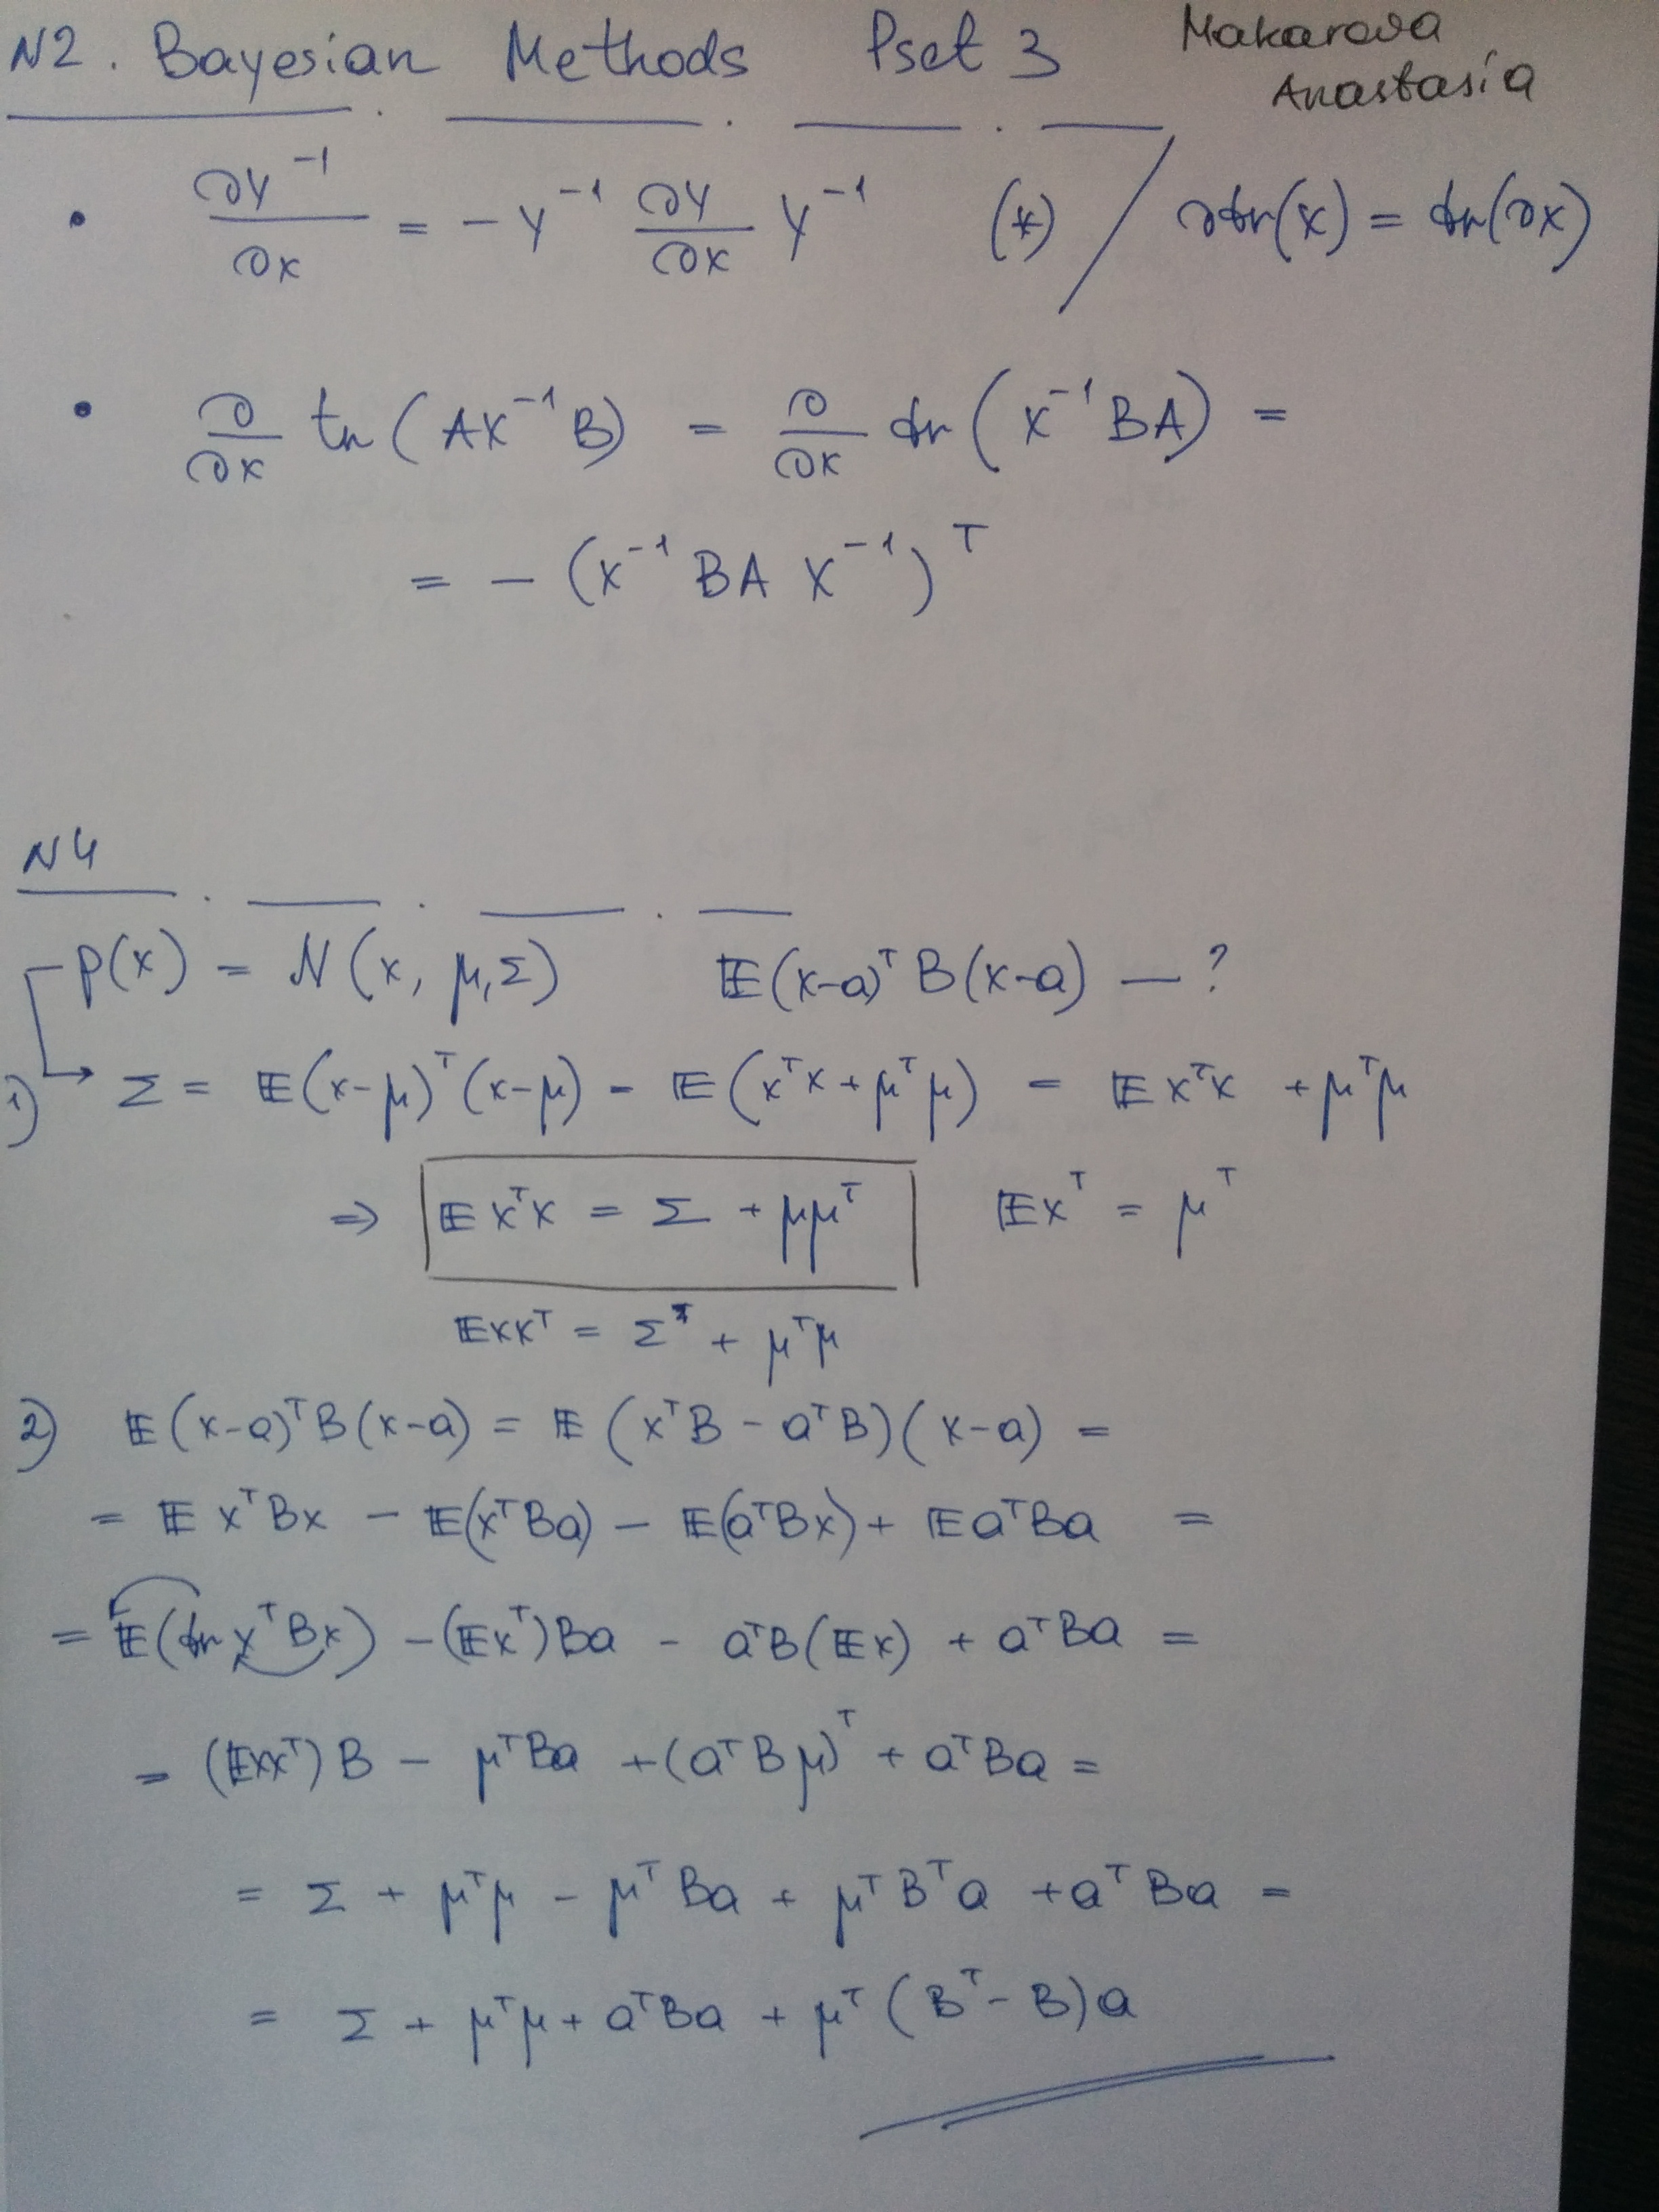 N2. Bayesian Methods Pset 3 Makarova Anastasia
• ∂Y⁻¹/∂x = − Y⁻¹ ∂Y/∂x Y⁻¹ (*) / ∂tr(x) = tr(∂x)
• ∂/∂x tr(AX⁻¹B) = ∂/∂x tr(X⁻¹BA) =
= − (X⁻¹ BA X⁻¹)ᵀ
N4
p(x) = N(x, μ, Σ) 𝔼(x-a)ᵀB(x-a) — ?
1) → Σ = 𝔼(x-μ)ᵀ(x-μ) = 𝔼(xᵀx + μᵀμ) = 𝔼xᵀx + μᵀμ
⇒ 𝔼xᵀx = Σ + μμᵀ 𝔼xᵀ = μᵀ
𝔼xxᵀ = Σ + μᵀμ
2) 𝔼(x-a)ᵀB(x-a) = 𝔼(xᵀB - aᵀB)(x-a) =
= 𝔼 xᵀBx − 𝔼(xᵀBa) − 𝔼(aᵀBx) + 𝔼aᵀBa =
= 𝔼(tr xᵀBx) − (𝔼xᵀ)Ba - aᵀB(𝔼x) + aᵀBa =
= (𝔼xxᵀ)B − μᵀBa + (aᵀBμ)ᵀ + aᵀBa =
= Σ + μᵀμ − μᵀBa + μᵀBᵀa + aᵀBa =
= Σ + μᵀμ + aᵀBa + μᵀ(Bᵀ - B)a